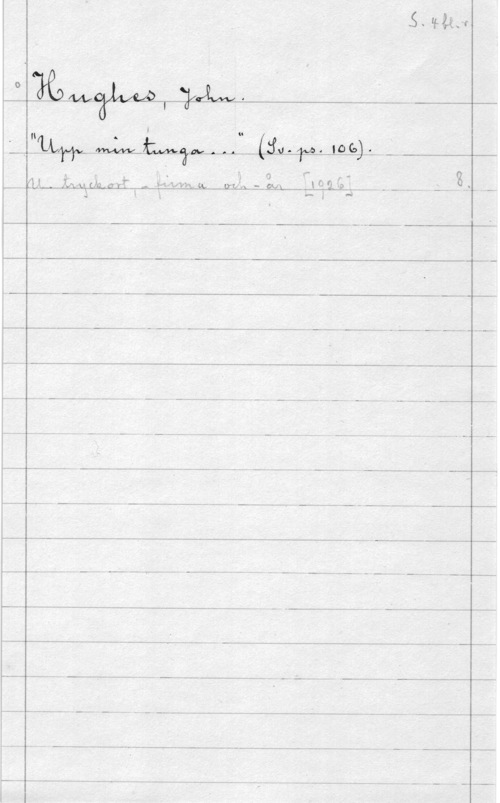 S. 4 bl. r.
Hughes, John.
"Upp min tunga..." (Sv. ps. 106).
U. tryckort, - firma och - år [1926] 8.